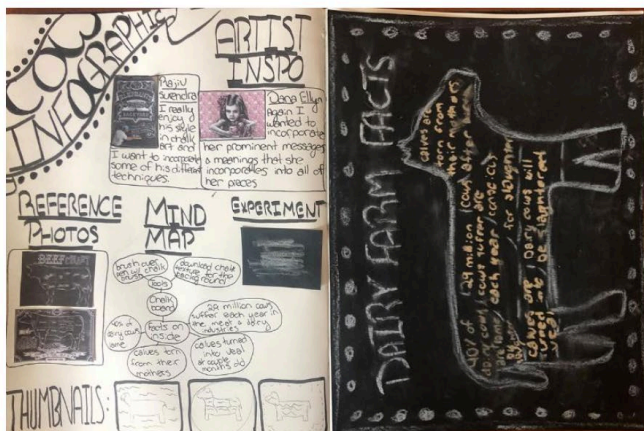 COW
INFOGRAPHIC
ARTIST
INSPO
Rajiv
Surendra
I really
enjoy
his style
in chalk
art and
I want to incorporate
some of his different
techniques.
Dana Ellyn
Again I
wanted to
incorporate
her prominent messages
& meanings that she
incorporates into all of
her pieces
REFERENCE
PHOTOS
MIND
MAP
EXPERIMENT
brush over
with chalk
brush
download chalk
texture
background
Tools
Chalk
board
Facts on
inside
29 million cows
suffer each year in
the meat & dairy
industries
40% of
dairy cows
lame
calves torn
from their
mothers
calves turned
into veal
at couple
months old
THUMBNAILS:
DAIRY FARM FACTS
calves are
torn from
their mothers
40% of
dairy cows
are lame
29 million
cows suffer
each year
calves are
turned into
veal
Dairy cows will
be slaughtered